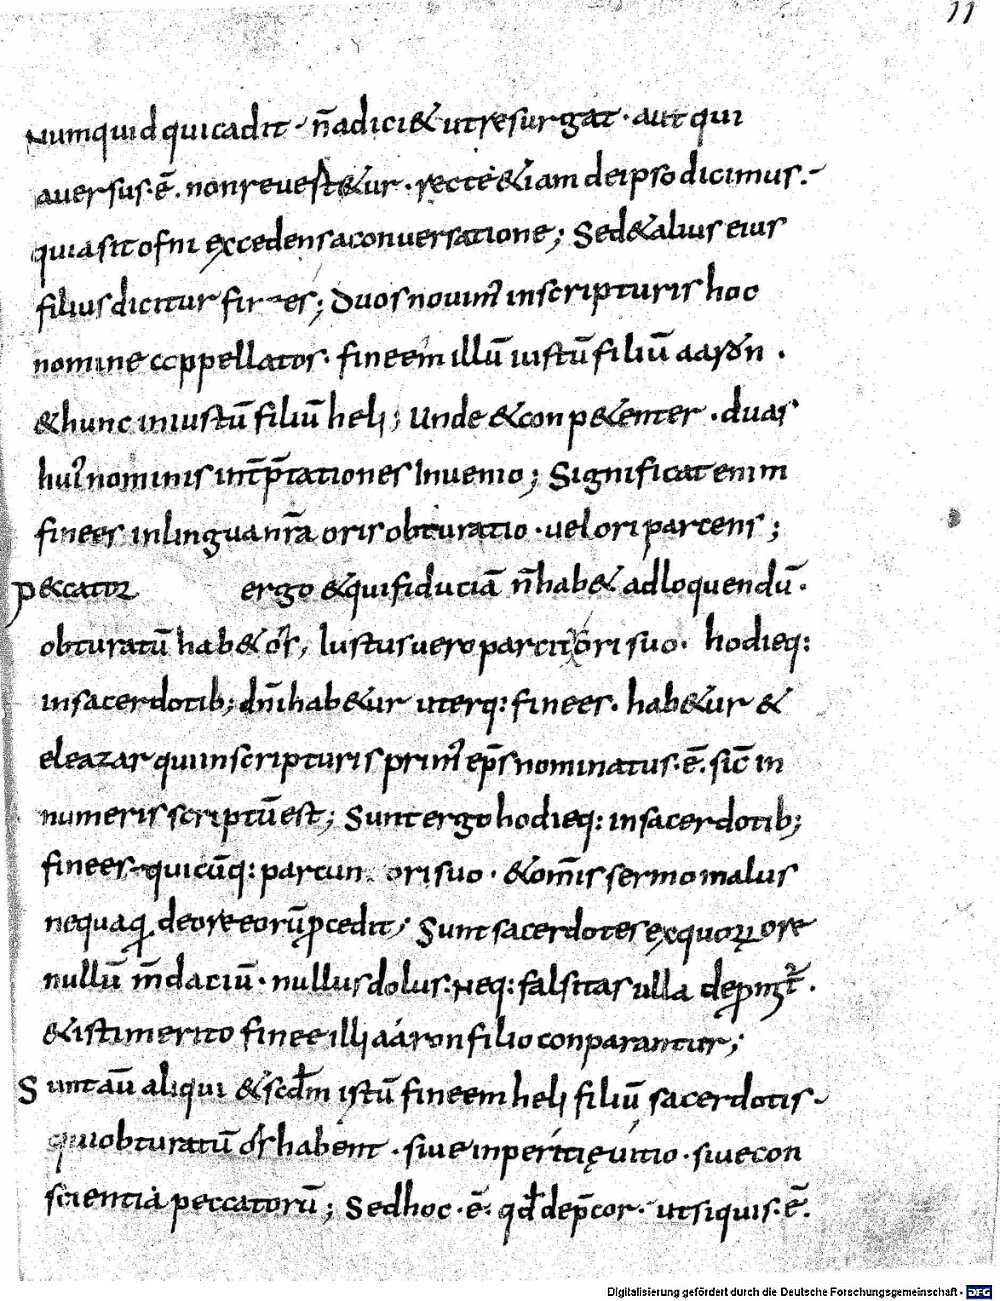 11
Numquid qui cadit · n̄ adici& ut resurgat · aut qui
aversus · ē · non revert&ur · recte &iam de ipso dicimus ·
quia sit ofni excedens a conversatione ; Sed & alius eius
filius dicitur finees ; Duos novim' in scripturis hoc
nomine appellatos · fineem illū iustū filiū aaron ·
& hunc iniustū filiū heli ; Unde & conp&enter · duas
hui' nominis int̄p̄tationes Invenio ; Significat enim
finees in lingua nr̄a oris obturatio · vel ori parcens ;
p&cator ergo & qui fiduciā n̄ hab& ad loquendū ·
obturatū hab& os , Iustus vero parcit ori suo · hodieq:
in sacerdotib; dn̄i hab&ur uterq: finees · hab&ur &
eleazar qui in scripturis prim' ep̄s nominatus · ē · sic̄ in
numeris scriptū est ; Sunt ergo hodieq: in sacerdotib;
finees · quicūq: parcun ori suo · & om̄is sermo malus
nequaq de ore eorū pcedit ; Sunt sacerdotes ex quoꝝ ore
nullū m̄daciū · nullus dolus : Neq: falsitas ulla
& isti merito finee illi aaron filio conparantur ;
Sunt aū aliqui & scd̄m istū fineem heli filiū sacerdotis ·
qui obturatū os habent · sive inperitię vitio · sive con
scientia peccatorū ; Sed hoc · ē · qd̄ dep̄cor · ut si quis · ē ·
Digitalisierung gefördert durch die Deutsche Forschungsgemeinschaft - DFG